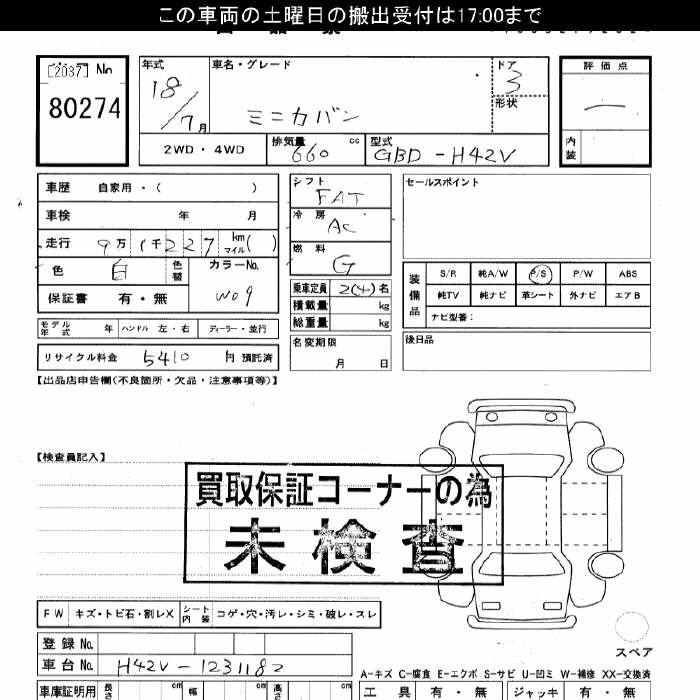 この車両の土曜日の搬出受付は17:00まで
[2037] No
80274
年式
18/7月
車名・グレード
ミニカバン
ドア
3
形状
評価点
内装
2WD・4WD
排気量 660 cc
型式 GBD-H42V
車歴 自家用・( )
車検 年 月
走行 9万1千227 km マイル( )
色 白 色替
カラーNo. W09
保証書 有・無
シフト FAT
冷房 AC
燃料 G
乗車定員 2(4)名
積載量 kg
総重量 kg
名変期限
月 日
セールスポイント
装備品
S/R 純A/W P/S P/W ABS
純TV 純ナビ 革シート 外ナビ エアB
ナビ型番:
後日品
モデル年式 年 ハンドル 左・右 ディーラー・並行
リサイクル料金 5410 円 預託済
【出品店申告欄(不良箇所・欠品・注意事項等)】
【検査員記入】
買取保証コーナーの為
未検査
FW キズ・トビ石・割レX シート内装 コゲ・穴・汚レ・シミ・破レ・スレ
登録No.
車台No. H42V-1231182
スペア
A-キズ C-腐食 E-エクボ S-サビ U-凹ミ W-補修 XX-交換済
車庫証明用 長さ cm 幅 cm 高さ cm
工具 有・無 ジャッキ 有・無